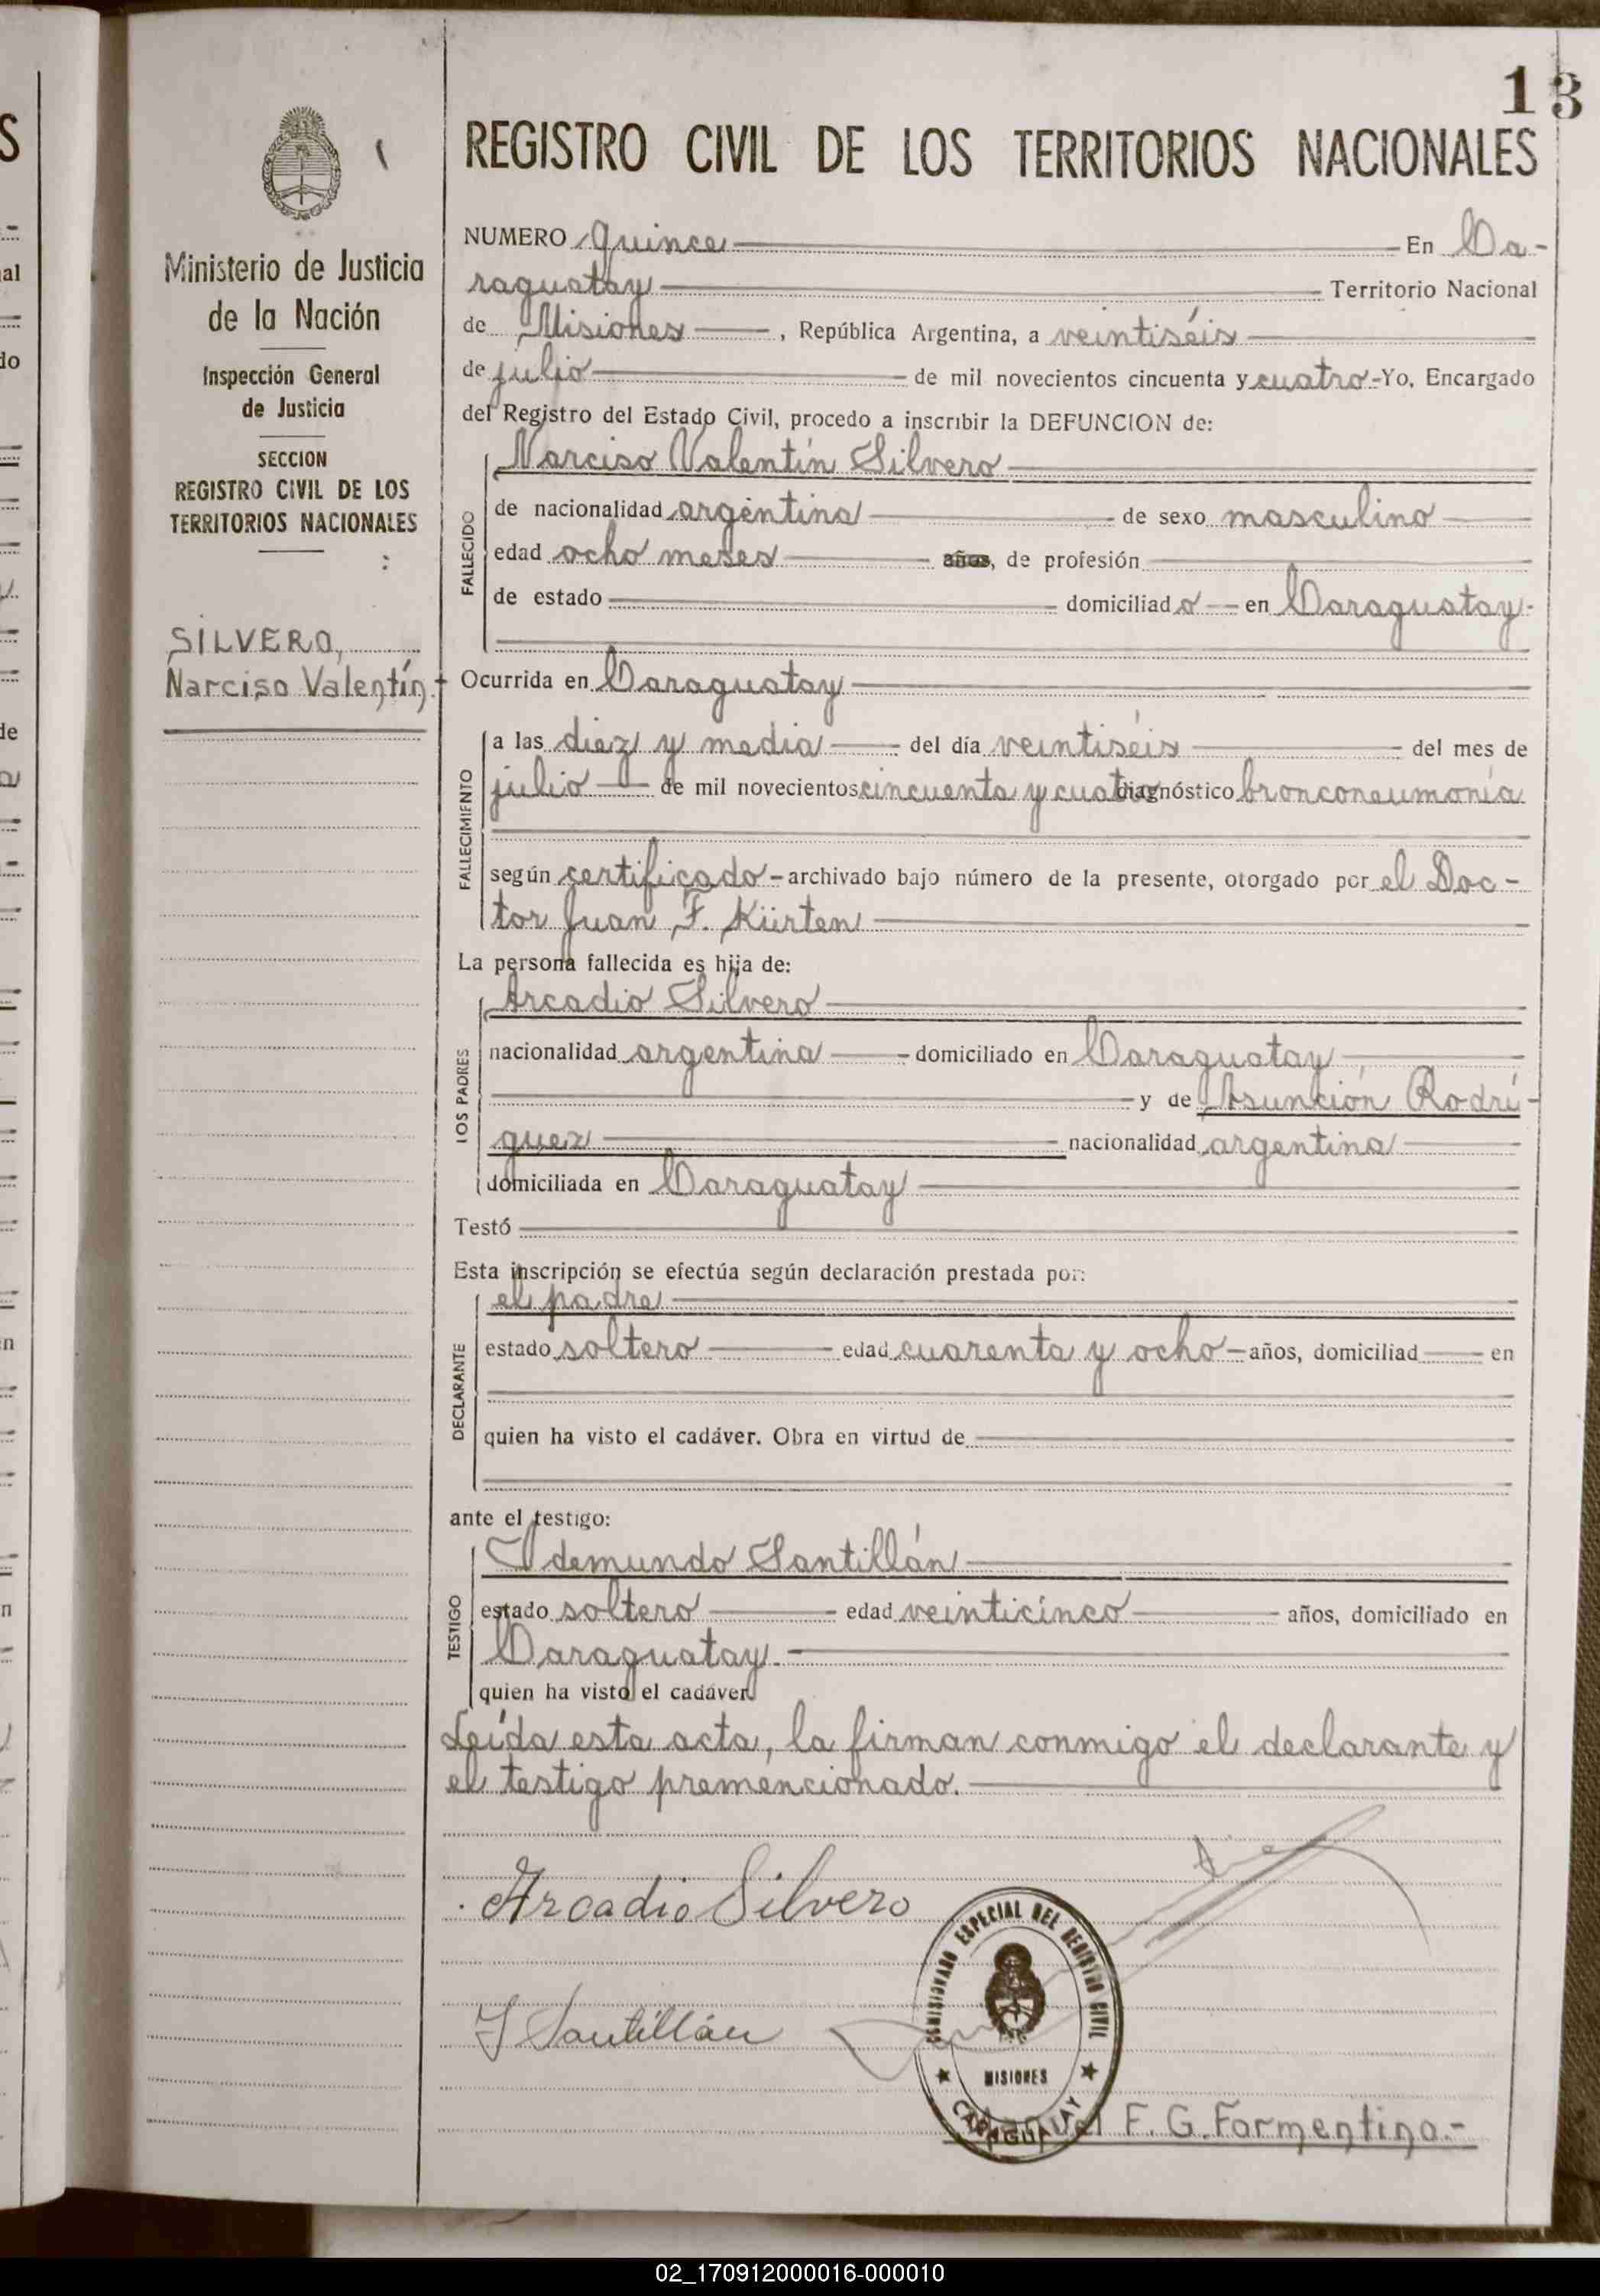 13
REGISTRO CIVIL DE LOS TERRITORIOS NACIONALES
Ministerio de Justicia
de la Nación
Inspección General
de Justicia
SECCION
REGISTRO CIVIL DE LOS
TERRITORIOS NACIONALES
SILVERO,
Narciso Valentín.
NUMERO quince En Ca-
raguatay Territorio Nacional
de Misiones, República Argentina, a veintiséis
de julio de mil novecientos cincuenta y cuatro - Yo, Encargado
del Registro del Estado Civil, procedo a inscribir la DEFUNCION de:
Narciso Valentín Silvero
FALLECIDO
de nacionalidad argentina de sexo masculino
edad ocho meses años, de profesión
de estado domiciliado en Caraguatay.
Ocurrida en Caraguatay
FALLECIMIENTO
a las diez y media del día veintiséis del mes de
julio de mil novecientos cincuenta y cuatro diagnóstico bronconeumonía
según certificado - archivado bajo número de la presente, otorgado por el Doc-
tor Juan F. Kürten
La persona fallecida es hija de:
LOS PADRES
Arcadio Silvero
nacionalidad argentina domiciliado en Caraguatay
y de Asunción Rodrí-
guez nacionalidad argentina
domiciliada en Caraguatay
Testó
Esta inscripción se efectúa según declaración prestada por:
DECLARANTE
el padre
estado soltero edad cuarenta y ocho - años, domiciliad en
quien ha visto el cadáver. Obra en virtud de
ante el testigo:
TESTIGO
Idemundo Santillán
estado soltero edad veinticinco años, domiciliado en
Caraguatay.
quien ha visto el cadáver
Leída esta acta, la firman conmigo el declarante y
el testigo premencionado.
Arcadio Silvero
I Santillán
COMISIONADO ESPECIAL DEL REGISTRO CIVIL
MISIONES
CARAGUATAY
F. G. Formentino.-
02_170912000016-000010